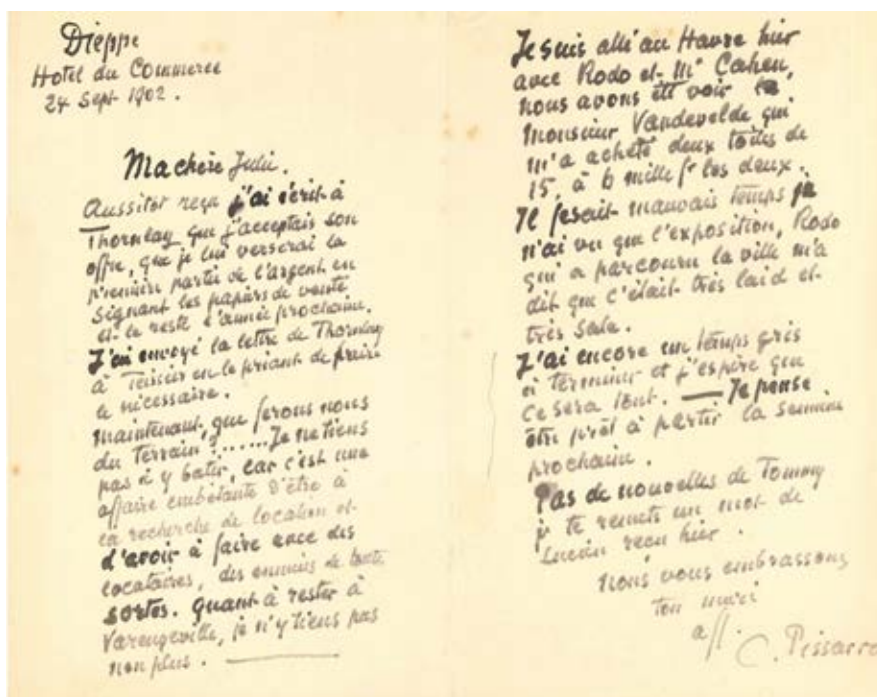 Dieppe
Hotel du Commerce
24 Sept 1902.
Ma chère Julie.
Aussitôt reçu j'ai écrit à
Thornlay que j'acceptais son
offre, que je lui verserai la
première partie de l'argent en
signant les papiers de vente
et le reste l'année prochaine.
J'ai envoyé la lettre de Thornlay
à Teisier en le priant de faire
le nécessaire.
Maintenant, que ferons nous
du terrain?......Je ne tiens
pas à y bâtir, car c'est une
affaire embêtante d'être à
la recherche de location et
d'avoir à faire avec des
locataires, des ennuis de toute
sortes. Quant à rester à
Varengeville, je n'y tiens pas
non plus. —
Je suis allé au Havre hier
avec Rodo et Mr Cahen,
nous avons été voir
Monsieur Vandevelde qui
m'a acheté deux toiles de
15, à 6 mille f les deux.
Il fesait mauvais temps je
n'ai vu que l'exposition, Rodo
qui a parcouru la ville m'a
dit que c'était très laid et
très sale.
J'ai encore un temps gris
à terminer et j'espère que
ce sera tout. — Je pense
être prêt à partir la semaine
prochaine.
Pas de nouvelles de Tommy
je te remets un mot de
Lucien reçu hier.
Nous vous embrassons
ton mari
aff.
C. Pissarro